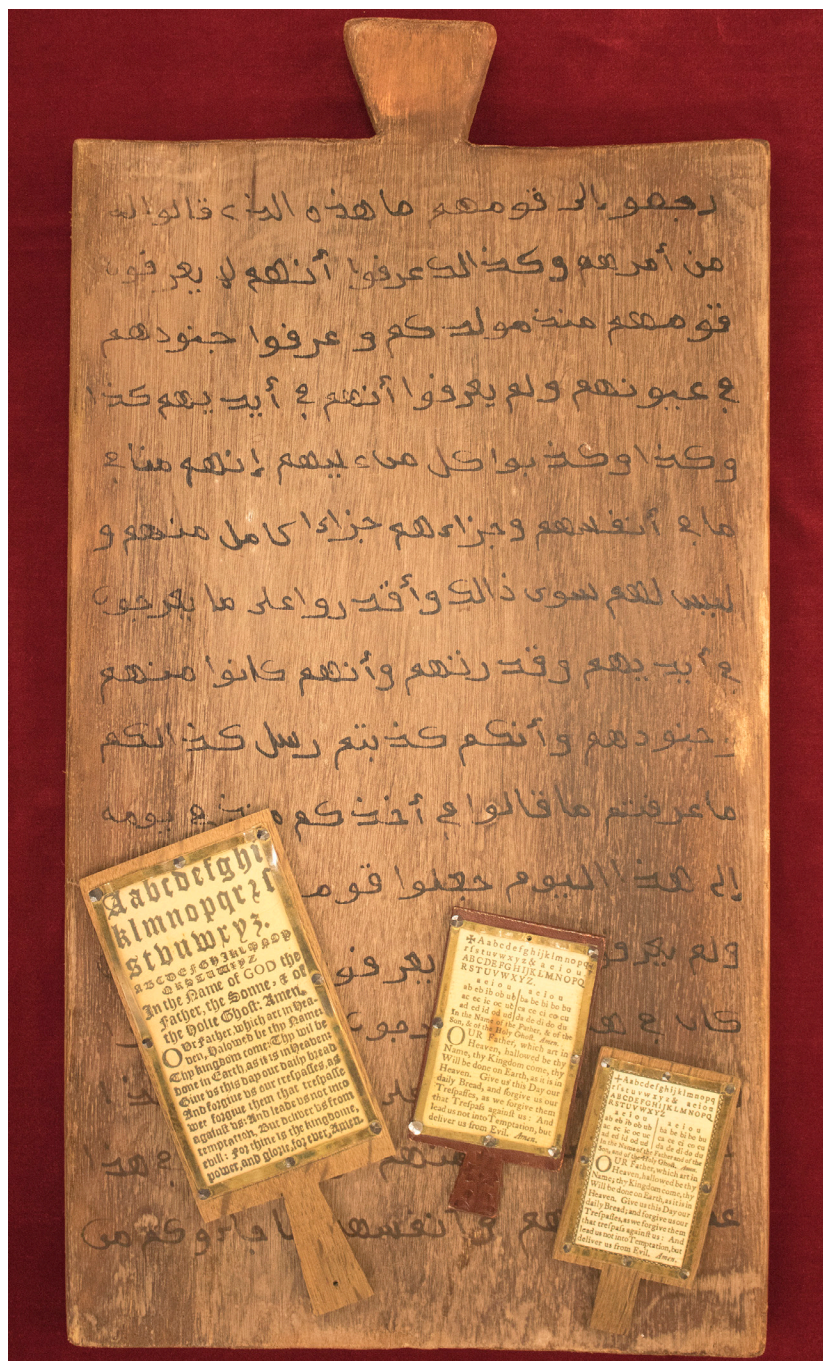 رجعو إلى قومهم ما هذه الذي قالوا له
من أمرهم وكذالك عرفوا أنهم لا يعرفون
قومهم منذ مولدكم و عرفوا جنودهم
في عيونهم ولم يعرفوا أنهم في أيديهم كذا
وكذا وكذبوا كل إنهم
ما في أنفسهم وجزاءهم جزاءا كامل منهم و
ليس لهم سوى ذالك وأقدروا على ما يعرجون
في أيديهم وقدرتهم وأنهم كانوا منهم
وجنودهم وأنكم كذبتم رسل كذالكم
ما عرفتم ما قالوا في أخذكم في يومه
إلى هذا اليوم جعلوا قوم
ولم يعرفو
في أنفسهم
Aabcdefghi
klmnopqrꝛſ
stvuwxyz.
ABCDEFGHIKLMNOP
QRSTUWXYZ
In the Name of GOD the
Father, the Sonne, & of
the Holie Ghost: Amen.
OUr Father, which art in Hea-
ven, Halowed be thy Name:
Thy kingdom come: Thy wil be
done in Earth, as it is in Heaven:
Give us this day our daily bread
And forgive us our trespasses, as
wee forgive them that trespasse
against us: And leade us not into
temptation, But deliver us from
evill: For thine is the kingdome,
power, and glorie, for ever, Amen.
✠Aabcdefghijklmnopq
rſstuvwxyz& aeiou
ABCDEFGHIJKLMNOPQ
RSTUVWXYZ.
a e i o u | a e i o u
ab eb ib ob ub | ba be bi bo bu
ac ec ic oc uc | ca ce ci co cu
ad ed id od ud | da de di do du
In the Name of the Father, & of the
Son, & of the Holy Ghost. Amen.
OUR Father, which art in
Heaven, hallowed be thy
Name, thy Kingdom come, thy
Will be done on Earth, as it is in
Heaven. Give us this Day our
daily Bread, and forgive us our
Treſpaſſes, as we forgive them
that Treſpaſs againſt us: And
lead us not into Temptation, but
deliver us from Evil. Amen.
✠Aabcdefghijklmnopq
rſstuvwxyz& aeiou
ABCDEFGHIJKLMNOPQ
RSTUVWXYZ
a e i o u | a e i o u
ab eb ib ob ub | ba be bi bo bu
ac ec ic oc uc | ca ce ci co cu
ad ed id od ud | da de di do du
In the Name of the Father and of the
Son, and of the Holy Ghost. Amen.
OUR Father, which art in
Heaven, hallowed be thy
Name; thy Kingdom come, thy
Will be done on Earth, as it is in
Heaven. Give us this Day our
daily Bread; and forgive us our
Treſpaſſes, as we forgive them
that treſpaſs againſt us: And
lead us not into Temptation, but
deliver us from Evil. Amen.